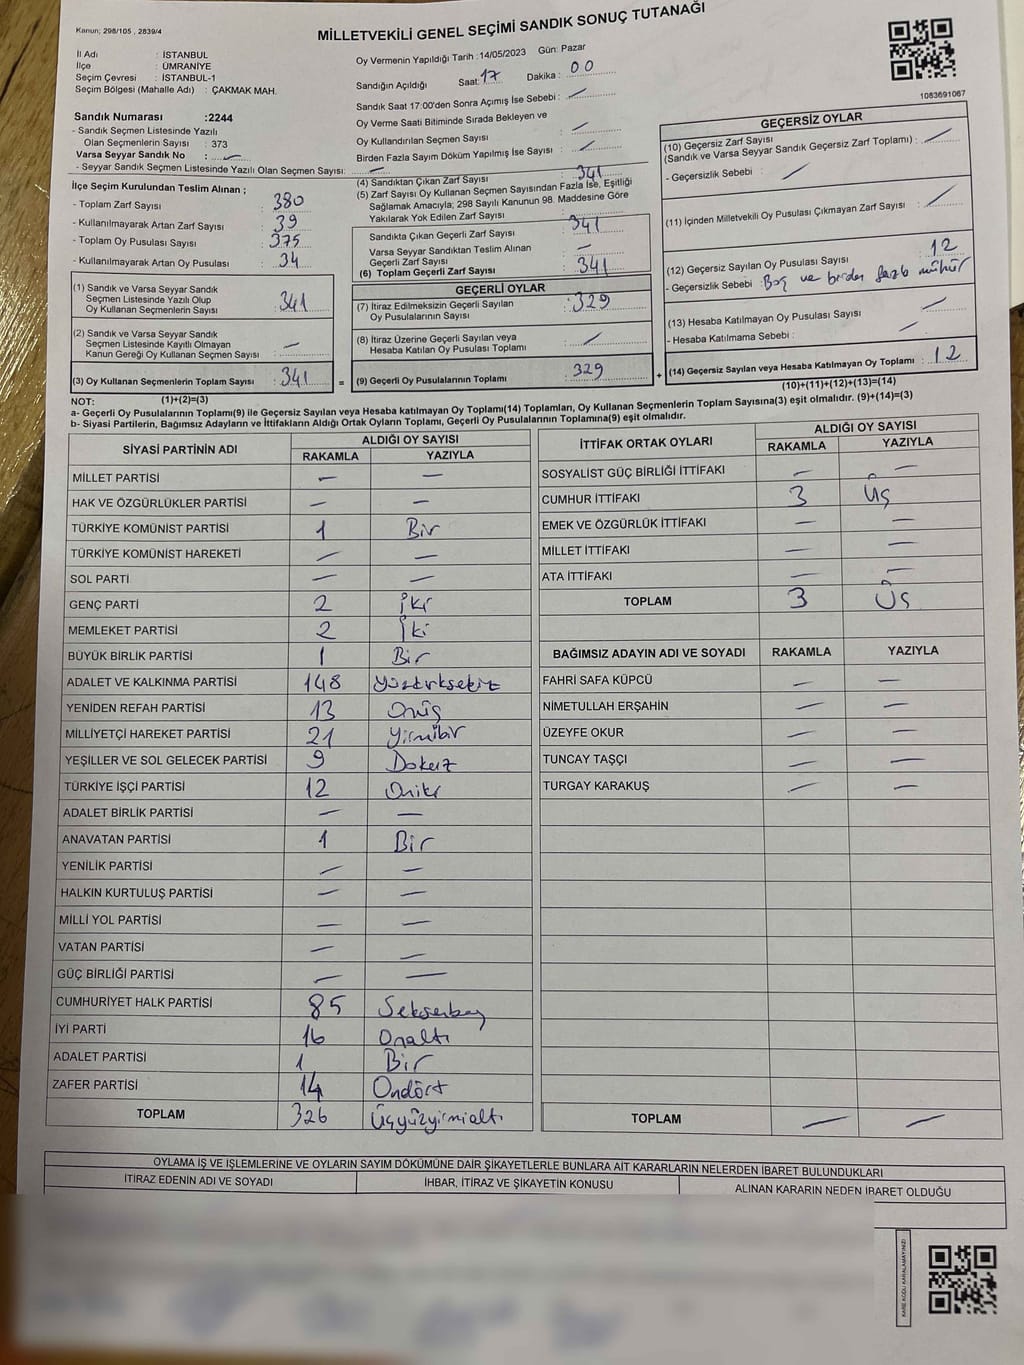 Kanun; 298/105 , 2839/4
MİLLETVEKİLİ GENEL SEÇİMİ SANDIK SONUÇ TUTANAĞI
İl Adı : İSTANBUL
İlçe : ÜMRANİYE
Seçim Çevresi : İSTANBUL-1
Seçim Bölgesi (Mahalle Adı) : ÇAKMAK MAH.
Oy Vermenin Yapıldığı Tarih : 14/05/2023 Gün: Pazar
Sandığın Açıldığı Saat: 17 Dakika : 00
Sandık Saat 17:00'den Sonra Açımış İse Sebebi : —
Oy Verme Saati Bitiminde Sırada Bekleyen ve
Oy Kullandırılan Seçmen Sayısı : —
Birden Fazla Sayım Döküm Yapılmış İse Sayısı : —
1083691067
Sandık Numarası :2244
- Sandık Seçmen Listesinde Yazılı
Olan Seçmenlerin Sayısı : 373
Varsa Seyyar Sandık No : —
- Seyyar Sandık Seçmen Listesinde Yazılı Olan Seçmen Sayısı: —
İlçe Seçim Kurulundan Teslim Alınan ;
- Toplam Zarf Sayısı : 380
- Kullanılmayarak Artan Zarf Sayısı : 39
- Toplam Oy Pusulası Sayısı : 375
- Kullanılmayarak Artan Oy Pusulası : 34
(1) Sandık ve Varsa Seyyar Sandık
Seçmen Listesinde Yazılı Olup
Oy Kullanan Seçmenlerin Sayısı : 341
(2) Sandık ve Varsa Seyyar Sandık
Seçmen Listesinde Kayıtlı Olmayan
Kanun Gereği Oy Kullanan Seçmen Sayısı : —
(3) Oy Kullanan Seçmenlerin Toplam Sayısı : 341 =
(1)+(2)=(3)
(4) Sandıktan Çıkan Zarf Sayısı : 341
(5) Zarf Sayısı Oy Kullanan Seçmen Sayısından Fazla İse, Eşitliği
Sağlamak Amacıyla; 298 Sayılı Kanunun 98. Maddesine Göre
Yakılarak Yok Edilen Zarf Sayısı :
Sandıkta Çıkan Geçerli Zarf Sayısı : 341
Varsa Seyyar Sandıktan Teslim Alınan
Geçerli Zarf Sayısı : —
(6) Toplam Geçerli Zarf Sayısı : 341
GEÇERLİ OYLAR
(7) İtiraz Edilmeksizin Geçerli Sayılan
Oy Pusulalarının Sayısı : 329
(8) İtiraz Üzerine Geçerli Sayılan veya
Hesaba Katılan Oy Pusulası Toplamı : —
(9) Geçerli Oy Pusulalarının Toplamı : 329 +
GEÇERSİZ OYLAR
(10) Geçersiz Zarf Sayısı
(Sandık ve Varsa Seyyar Sandık Geçersiz Zarf Toplamı) : —
- Geçersizlik Sebebi : —
(11) İçinden Milletvekili Oy Pusulası Çıkmayan Zarf Sayısı : —
(12) Geçersiz Sayılan Oy Pusulası Sayısı : 12
- Geçersizlik Sebebi : Boş ve birden fazla mühür
(13) Hesaba Katılmayan Oy Pusulası Sayısı : —
- Hesaba Katılmama Sebebi : —
(14) Geçersiz Sayılan veya Hesaba Katılmayan Oy Toplamı : 12
(10)+(11)+(12)+(13)=(14)
NOT:
a- Geçerli Oy Pusulalarının Toplamı(9) ile Geçersiz Sayılan veya Hesaba katılmayan Oy Toplamı(14) Toplamları, Oy Kullanan Seçmenlerin Toplam Sayısına(3) eşit olmalıdır. (9)+(14)=(3)
b- Siyasi Partilerin, Bağımsız Adayların ve İttifakların Aldığı Ortak Oyların Toplamı, Geçerli Oy Pusulalarının Toplamına(9) eşit olmalıdır.
SİYASİ PARTİNİN ADI ALDIĞI OY SAYISI
RAKAMLA YAZIYLA
MİLLET PARTİSİ — —
HAK VE ÖZGÜRLÜKLER PARTİSİ — —
TÜRKİYE KOMÜNİST PARTİSİ 1 Bir
TÜRKİYE KOMÜNİST HAREKETİ — —
SOL PARTİ — —
GENÇ PARTİ 2 İki
MEMLEKET PARTİSİ 2 İki
BÜYÜK BİRLİK PARTİSİ 1 Bir
ADALET VE KALKINMA PARTİSİ 148 Yüzkırksekiz
YENİDEN REFAH PARTİSİ 13 Onüç
MİLLİYETÇİ HAREKET PARTİSİ 21 Yirmibir
YEŞİLLER VE SOL GELECEK PARTİSİ 9 Dokuz
TÜRKİYE İŞÇİ PARTİSİ 12 Oniki
ADALET BİRLİK PARTİSİ — —
ANAVATAN PARTİSİ 1 Bir
YENİLİK PARTİSİ — —
HALKIN KURTULUŞ PARTİSİ — —
MİLLİ YOL PARTİSİ — —
VATAN PARTİSİ — —
GÜÇ BİRLİĞİ PARTİSİ — —
CUMHURİYET HALK PARTİSİ 85 Seksenbeş
İYİ PARTİ 16 Onaltı
ADALET PARTİSİ 1 Bir
ZAFER PARTİSİ 14 Ondört
TOPLAM 326 Üçyüzyirmialtı
İTTİFAK ORTAK OYLARI ALDIĞI OY SAYISI
RAKAMLA YAZIYLA
SOSYALİST GÜÇ BİRLİĞİ İTTİFAKI — —
CUMHUR İTTİFAKI 3 Üç
EMEK VE ÖZGÜRLÜK İTTİFAKI — —
MİLLET İTTİFAKI — —
ATA İTTİFAKI — —
TOPLAM 3 Üç
BAĞIMSIZ ADAYIN ADI VE SOYADI RAKAMLA YAZIYLA
FAHRİ SAFA KÜPCÜ — —
NİMETULLAH ERŞAHİN — —
ÜZEYFE OKUR — —
TUNCAY TAŞÇI — —
TURGAY KARAKUŞ — —
TOPLAM — —
OYLAMA İŞ VE İŞLEMLERİNE VE OYLARIN SAYIM DÖKÜMÜNE DAİR ŞİKAYETLERLE BUNLARA AİT KARARLARIN NELERDEN İBARET BULUNDUKLARI
İTİRAZ EDENİN ADI VE SOYADI İHBAR, İTİRAZ VE ŞİKAYETİN KONUSU ALINAN KARARIN NEDEN İBARET OLDUĞU
KARE KODU KARALAMAYINIZ!